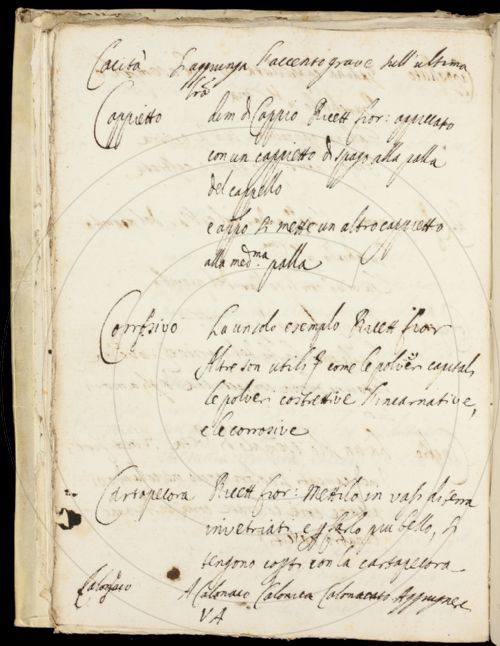 Cacità si aggiunga l'accento grave sull'ultima
Cappietto dim di Cappio Ricett fior: appiccato
con un cappietto di spago alla palla
del cappello
e appo si mette un altro cappietto
alla med.ma palla
Corrosivo Ha un solo esempio Ricett fior
Altre son utili come le polveri capitali
le polveri costrettive l'incarnative,
e le corrosive
Cartapecora Ricett fior: Mettilo in vasi di terra
invetriati, e p farlo più bello, si
tengono coperti con la cartapecora
Calonaco A Calonaco Calonica Calonacato Aggiugnere
V A